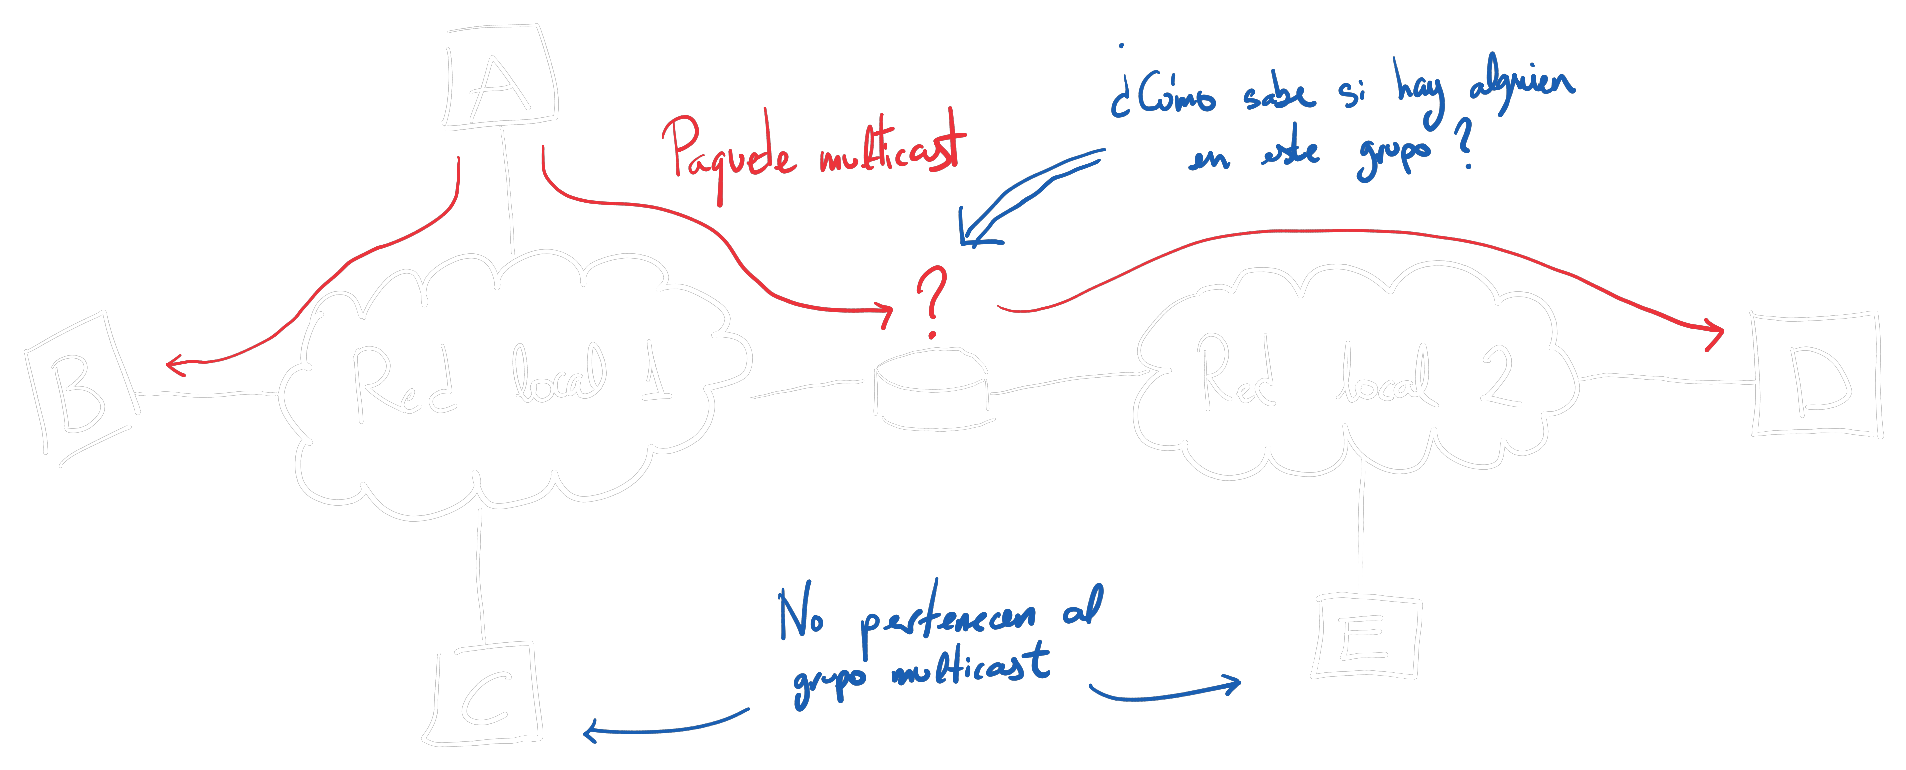 A
Paquete multicast
¿Cómo sabe si hay alguien
en este grupo?
?
B
Red local 1
Red local 2
D
No pertenecen al
grupo multicast
E
C